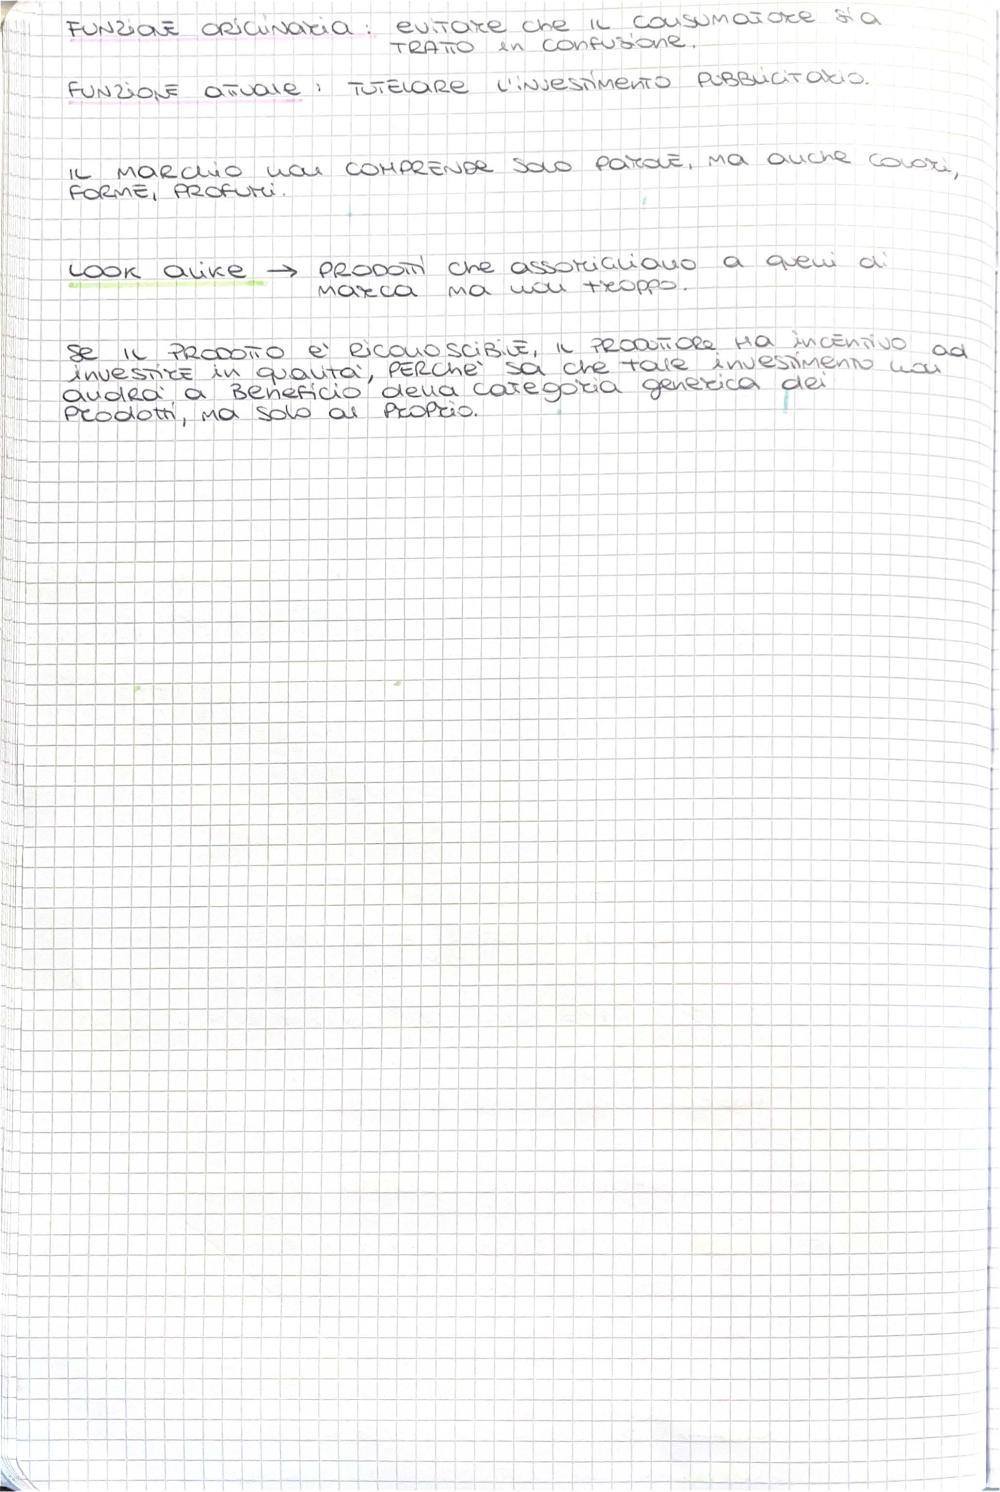 FUNZIONE ORIGINARIA: evitare che il consumatore sia
TRATTO in confusione.
FUNZIONE ATTUALE: TUTELARE L'investimento PUBBLICITARIO.
IL MARCHIO non COMPRENDE SOLO PAROLE, MA anche COLORI,
FORME, PROFUMI.
LOOK ALIKE → PRODOTTI che assomigliano a quelli di
MARCA ma non troppo.
Se IL PRODOTTO è RICONOSCIBILE, il PRODUTTORE HA incentivo ad
investire in qualità, PERCHÈ sa che tale investimento non
andrà a Beneficio della categoria generica dei
Prodotti, ma solo al Proprio.